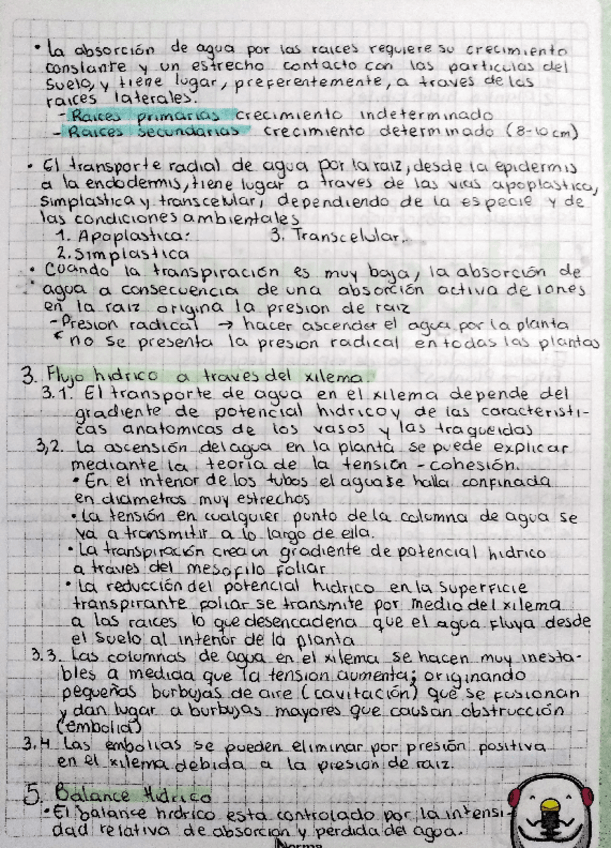 • La absorción de agua por las raices requiere su crecimiento
constante y un estrecho contacto con las particulas del
suelo, y tiene lugar, preferentemente, a traves de las
raices laterales.
- Raices primarias crecimiento indeterminado
- Raices secundarias crecimiento determinado (8-10 cm)
• El transporte radial de agua por la raiz, desde la epidermis
a la endodermis, tiene lugar a traves de las vias apoplastica,
simplastica y transcelular, dependiendo de la especie y de
las condiciones ambientales
1. Apoplastica: 3. Transcelular.
2. Simplastica
• Cuando la transpiración es muy baja, la absorción de
agua a consecuencia de una absorción activa de iones
en la raiz origina la presion de raiz
- Presion radical → hacer ascender el agua por la planta
no se presenta la presion radical en todas las plantas
3. Flujo hidrico a traves del xilema.
3.1. El transporte de agua en el xilema depende del
gradiente de potencial hidrico y de las caracteristi-
cas anatomicas de los vasos y las traqueidas
3,2. La ascensión del agua en la planta se puede explicar
mediante la teoria de la tensión - cohesión.
• En el interior de los tubos el agua se halla confinada
en diametros muy estrechos
• La tensión en cualquier punto de la columna de agua se
va a transmitir a lo largo de ella.
• La transpiración crea un gradiente de potencial hidrico
a traves del mesofilo foliar
• La reducción del potencial hidrico en la superficie
transpirante foliar se transmite por medio del xilema
a las raices lo que desencadena que el agua fluya desde
el suelo al interior de la planta
3.3. Las columnas de agua en el xilema se hacen muy inesta-
bles a medida que la tension aumenta; originando
pequeñas burbujas de aire (cavitación) que se fusionan
y dan lugar a burbujas mayores que causan obstrucción
(embolia)
3.4 Las embolias se pueden eliminar por presión positiva
en el xilema debida a la presion de raiz.
5. Balance Hidrico
• El balance hidrico esta controlado por la intensi-
dad relativa de absorcion y perdida del agua.
Norma